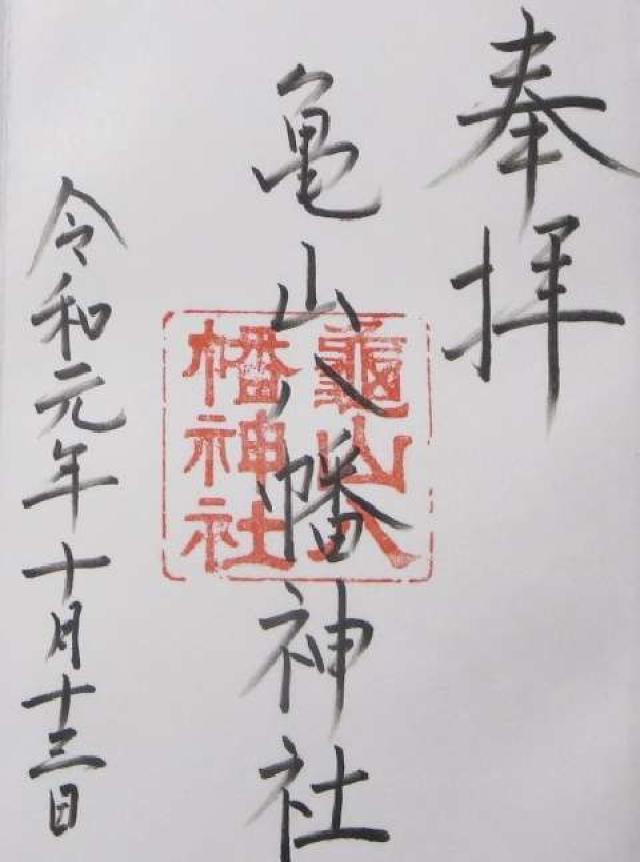 奉拝
亀山八幡神社
龜山八
幡神社
令和元年十月十三日